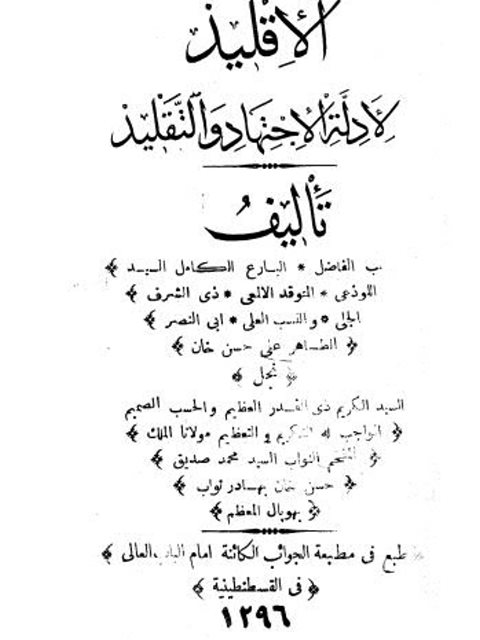 الإقليد
لأدلة الاجتهاد والتقليد
تأليف
الفاضل * البارع الكامل السيد ﴾
اللوذعى * المتوقد الالمعى * ذى الشرف ﴾
الجلى * والنسب العلى * ابى النصر ﴾
﴿ الطاهر على حسن خان ﴾
﴿ نجل ﴾
السيد الكريم ذى القدر العظيم والحسب الصميم
﴿ الواجب له التكريم والتعظيم مولانا الملك ﴾
﴿ المفخم النواب السيد محمد صديق ﴾
﴿ حسن خان بهادر نواب ﴾
﴿ بهوبال المعظم ﴾
طبع فى مطبعة الجوائب الكائنة امام الباب العالى ﴾
﴿ فى القسطنطينية ﴾
١٢٩٦